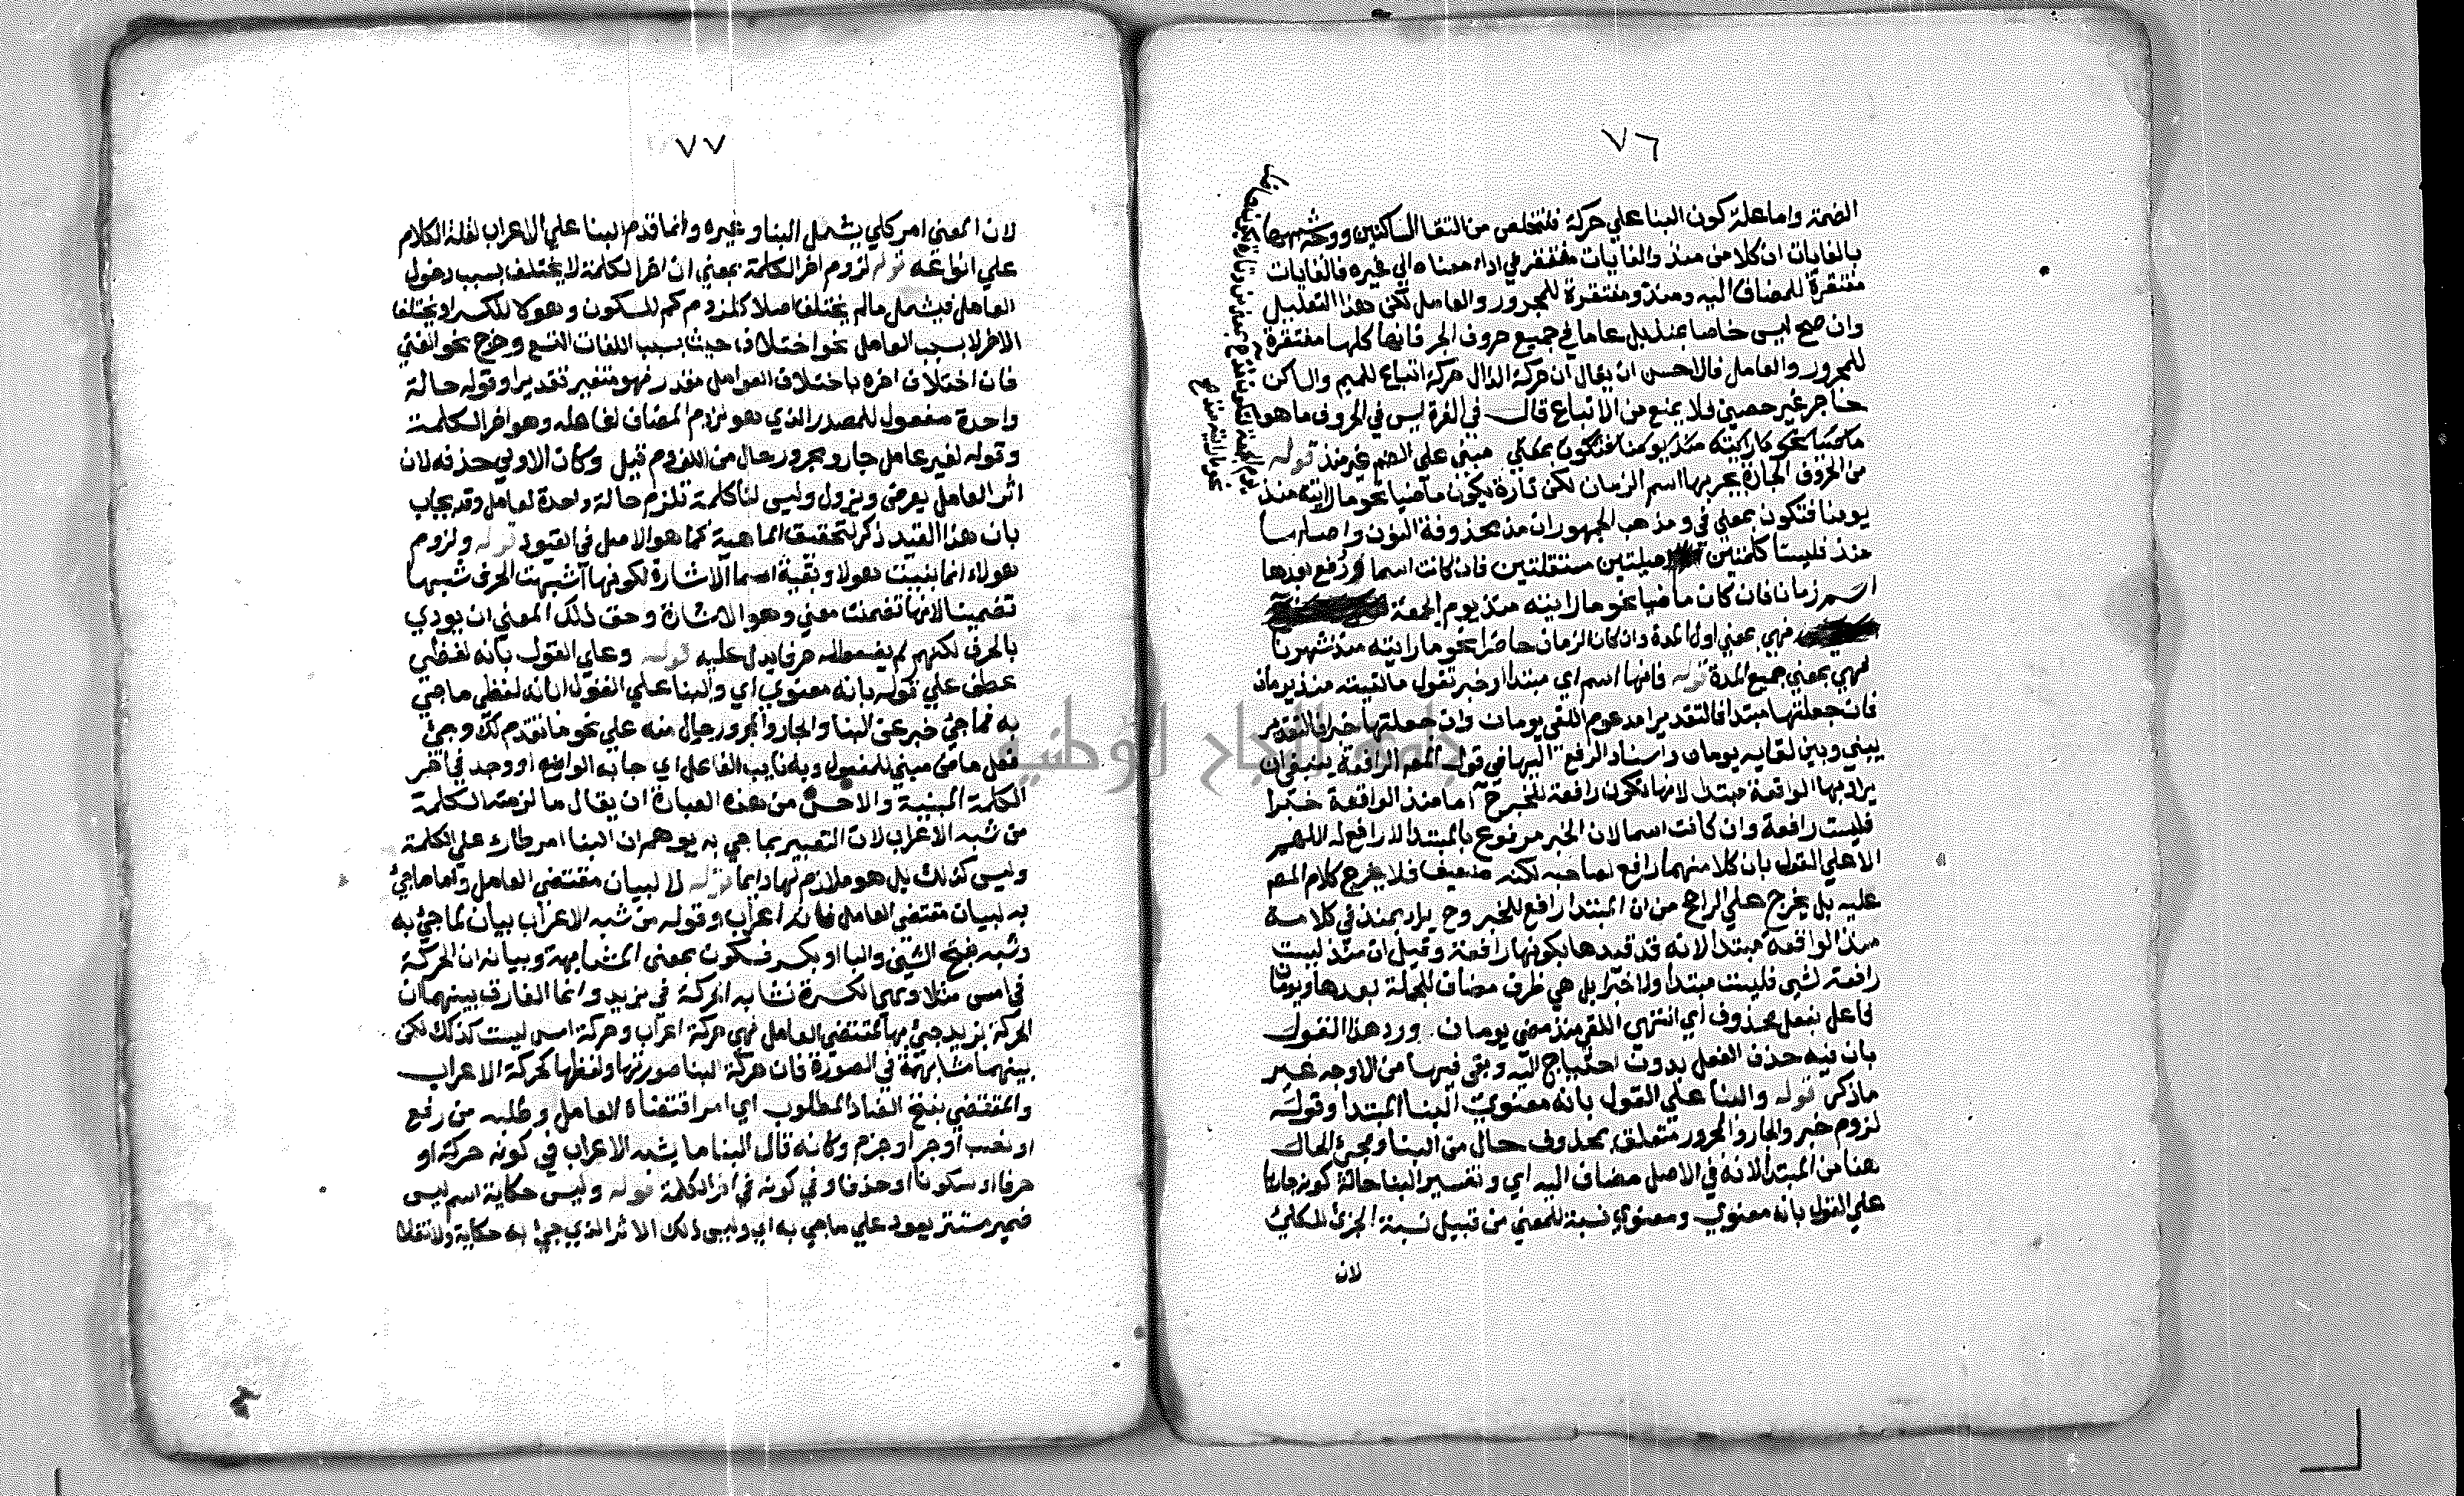 ٧٦
الضمة واما علة كون البنا علي حركة فلتخلص من التقا الساكنين ووجه شبهها
بالغايات ان كلا من منذ والغايات مفتقر في اداء معناه الي غيره فالغايات
مفتقرة للمضاف اليه ومنذ ومفتقرة للمجرور والعامل لكن هذا التعليل
وان صح ليس خاصا بمنذ بل عاما في جميع حروف الجر فانها كلها مفتقرة
للمجرور والعامل فالاحسن ان يقال ان حركة الذال حركة اتباع للميم والساكن
حاجز غير حصين فلا يمنع من الاتباع قال في الغرة ليس في الحروف ما هو
مبني علي الضم غير منذ قوله
من الحروف الجارة يجر بها اسم الزمان لكن تارة يكون ماضيا نحو ما رايته منذ
يومنا فتكون بمعني في ومذهب الجمهور ان مذ محذوفة النون واصلها
منذ فليستا كلمتين اصليتين مستقلتين فان كانت اسما ورفع بعدها
اسم زمان فان كان ماضيا نحو ما رايته منذ يوم الجمعة
فهي بمعني اول المدة وان كان الزمان حاضرا نحو ما رايته منذ شهرنا
فهي بمعني جميع المدة قوله فانها اسم اي مبتدا او خبر تقول ما لقيته منذ يومان
فان جعلتها مبتدا فالتقدير امد عدم اللقي يومان وان جعلتها خبرا فالتقدير
بيني وبين لقايه يومان واسناد الرفع اليها في قول المص الرافعة ينبغي ان
يراد بها الواقعة مبتدا لانها تكون رافعة للخبر ح اما منذ الواقعة خبرا
فليست رافعة وان كانت اسما لان الخبر مرفوع بالمبتدا لا رافع له اللهم
الا علي القول بان كلا منهما رافع لصاحبه لكنه ضعيف فلا يخرج كلام المص
عليه بل يخرج علي الراجح من ان المبتدا رافع للخبر وح يراد بمنذ في كلامه
منذ الواقعة مبتدا لانه قد قيدها بكونها رافعة وقيل ان منذ ليست
رافعة لشي فليست مبتدا ولا خبرا بل هي ظرف مضاف للجملة بعدها ويومان
فاعل بفعل محذوف اي انتهي اللقي منذ مضي يومان ورد هذا القول
بان فيه حذف الفعل بدون احتياج اليه وبقي فيها من الاوجه غير
ماذكر قوله والبنا علي القول بانه معنوي البنا المبتدا وقوله
لزوم خبر والجار والمجرور متعلق بمحذوف حال من البنا ومجي الحال
هنا من المبتدا لانه في الاصل مضاف اليه اي وتفسير البنا حالة كونه جاريا
علي القول بانه معنوي ومعنوي نسبة للمعني من قبيل نسبة الجزئ للكلي
لان
٧٧
لان المعني امر كلي يشمل البنا وغيره وانما قدم البنا علي الاعراب لقلة الكلام
علي انواعه قوله لزوم اخر الكلمة بمعني ان اخر الكلمة لا يختلف بسبب دخول
العامل فيشمل مالم يختلف اصلا كلزوم كم للسكون وهولا للكسر او يختلف
الاخر لا بسبب العامل نحو اختلاف حيث بسبب اللغات التسع وخرج نحو الفتي
فان اختلاف اخره باختلاف العوامل مقدر فهو متغير تقديرا وقوله حالة
واحدة مفعول للمصدر الذي هو لزوم المضاف لفاعله وهو اخر الكلمة
وقوله لغير عامل جار ومجرور حال من اللزوم قيل وكان الاولي حذفه لان
اثر العامل يعرض ويزول وليس لنا كلمة تلزم حالة واحدة لعامل وقد يجاب
بان هذا القيد ذكر لتحقيق الماهية كما هو الاصل في القيود قوله ولزوم
هولاء انما بنيت هولا وبقية اسما الاشارة لكونها اشبهت الحرف شبها
تضمينا لانها تضمنت معني وهو الاشارة وحق ذلك المعني ان يودي
بالحرف لكنهم لم يضعوا له حرفا يدل عليه قوله وعلي القول بانه لفظي
عطف علي قوله بانه معنوي اي والبنا علي القول انه لفظي ما جئ
به فما جئ خبر عن البنا والجار والمجرور حال منه علي نحو ما تقدم لك وجئ
فعل ماض مبني للمفعول وبه نايب الفاعل اي جا به الواضع او وجد في اخر
الكلمة المبنية والاحسن من هذه العبارة ان يقال ما لزمته الكلمة
من شبه الاعراب لان التعبير بما جي به يوهم ان البنا امر طارئ علي الكلمة
وليس كذلك بل هو ملازم لها دايما قوله لا لبيان مقتضي العامل واما ما جئ
به لبيان مقتضي العامل فانه اعراب وقوله من شبه الاعراب بيان لما جئ به
وشبه بفتح الشين والبا او بكسر فسكون بمعني المشابهة وبيانه ان الحركة
في امس مثلا وهي الكسرة تشابه الحركة في بزيد وانما الفارق بينهما ان
الحركة بزيد جئ بها لمقتضي العامل فهي حركة اعراب وحركة امس ليست كذلك لكن
بينهما مشابهة في الصورة فان حركة البنا صورتها ولفظها كحركة الاعراب
والمقتضي بفتح الضاد المطلوب اي امر اقتضاه العامل وطلبه من رفع
او نصب او جر او جزم وكانه قال البنا ما يشبه الاعراب في كونه حركة او
حرفا او سكونا او حذفا وفي كونه في اخر الكلمة قوله وليس حكاية اسم ليس
ضمير مستتر يعود علي ما جي به اي وليس ذلك الاثر الذي جئ به حكاية ولا نقلا